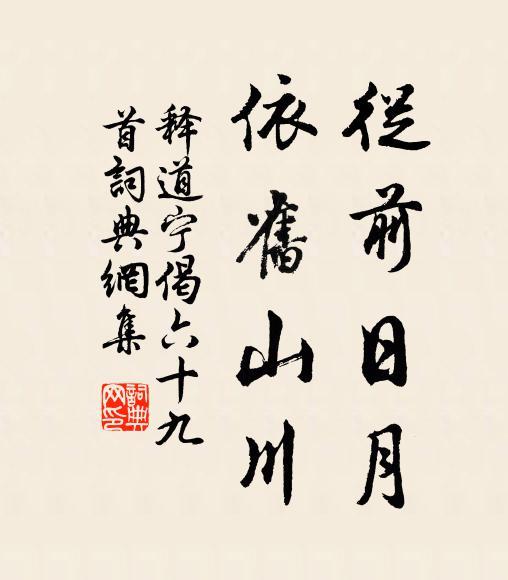 從前日月
依舊山川
释道宁偈六十九
首詞典網集
詞典
网印